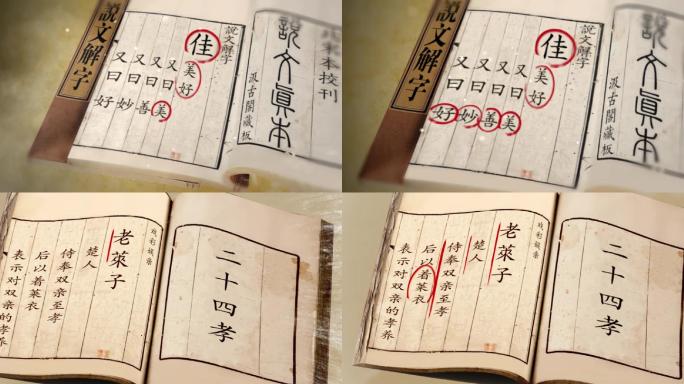 北宋本校刊
說文眞本
汲古閣藏板
說文解字
佳
美好
又曰美
又曰善
又曰妙
又曰好
說文解字
說文眞本
汲古閣藏板
說文解字
佳
美好
又曰美
又曰善
又曰妙
又曰好
說文解字
二十四孝
戏彩娱亲
老萊子
楚人
侍奉双亲至孝
后以着萊衣
表示对双亲的孝养
二十四孝
戏彩娱亲
老萊子
楚人
侍奉双亲至孝
后以着萊衣
表示对双亲的孝养